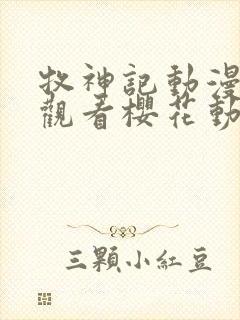 牧神記動漫
觀看櫻花動
三顆小紅豆